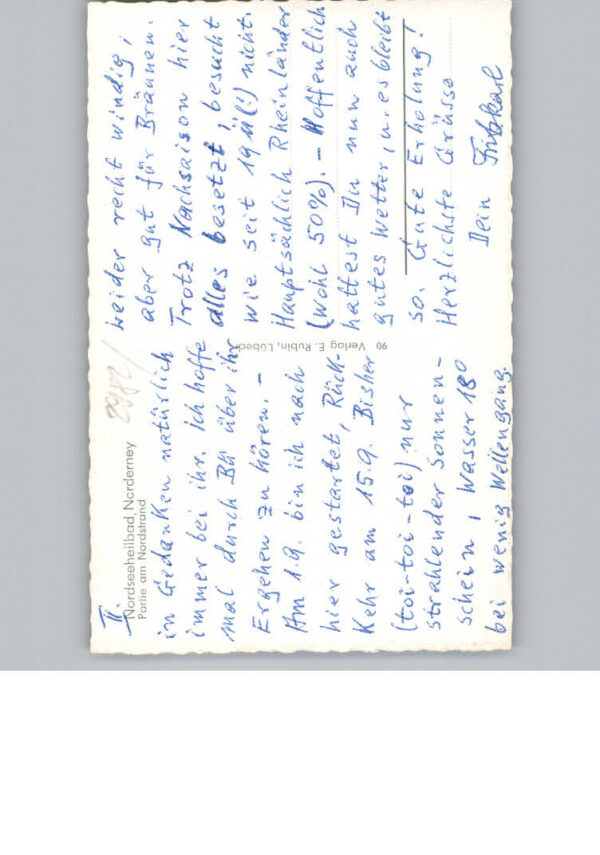 II.
Nordseeheilbad Norderney
Partie am Nordstrand
2982/
in Gedanken natürlich
immer bei ihr. Ich hoffe
mal durch Bü über ihr
Ergehen zu hören. –
Am 1.9. bin ich nach
hier gestartet, Rück-
kehr am 15.9. Bisher
(toi-toi-toi) nur
strahlender Sonnen-
schein, Wasser 18°
bei wenig Wellengang.
90 Verlag E. Rubin, Lübeck
Leider recht windig,
aber gut für Bräunen.
Trotz Nachsaison hier
alles besetzt, besucht
wie seit 1911(!) nicht.
Hauptsächlich Rheinländer
(wohl 50%). – Hoffentlich
hattest Du nun auch
gutes Wetter, u. es bleibt
so. Gute Erholung!
Herzlichste Grüsse
Dein Fritzkarl